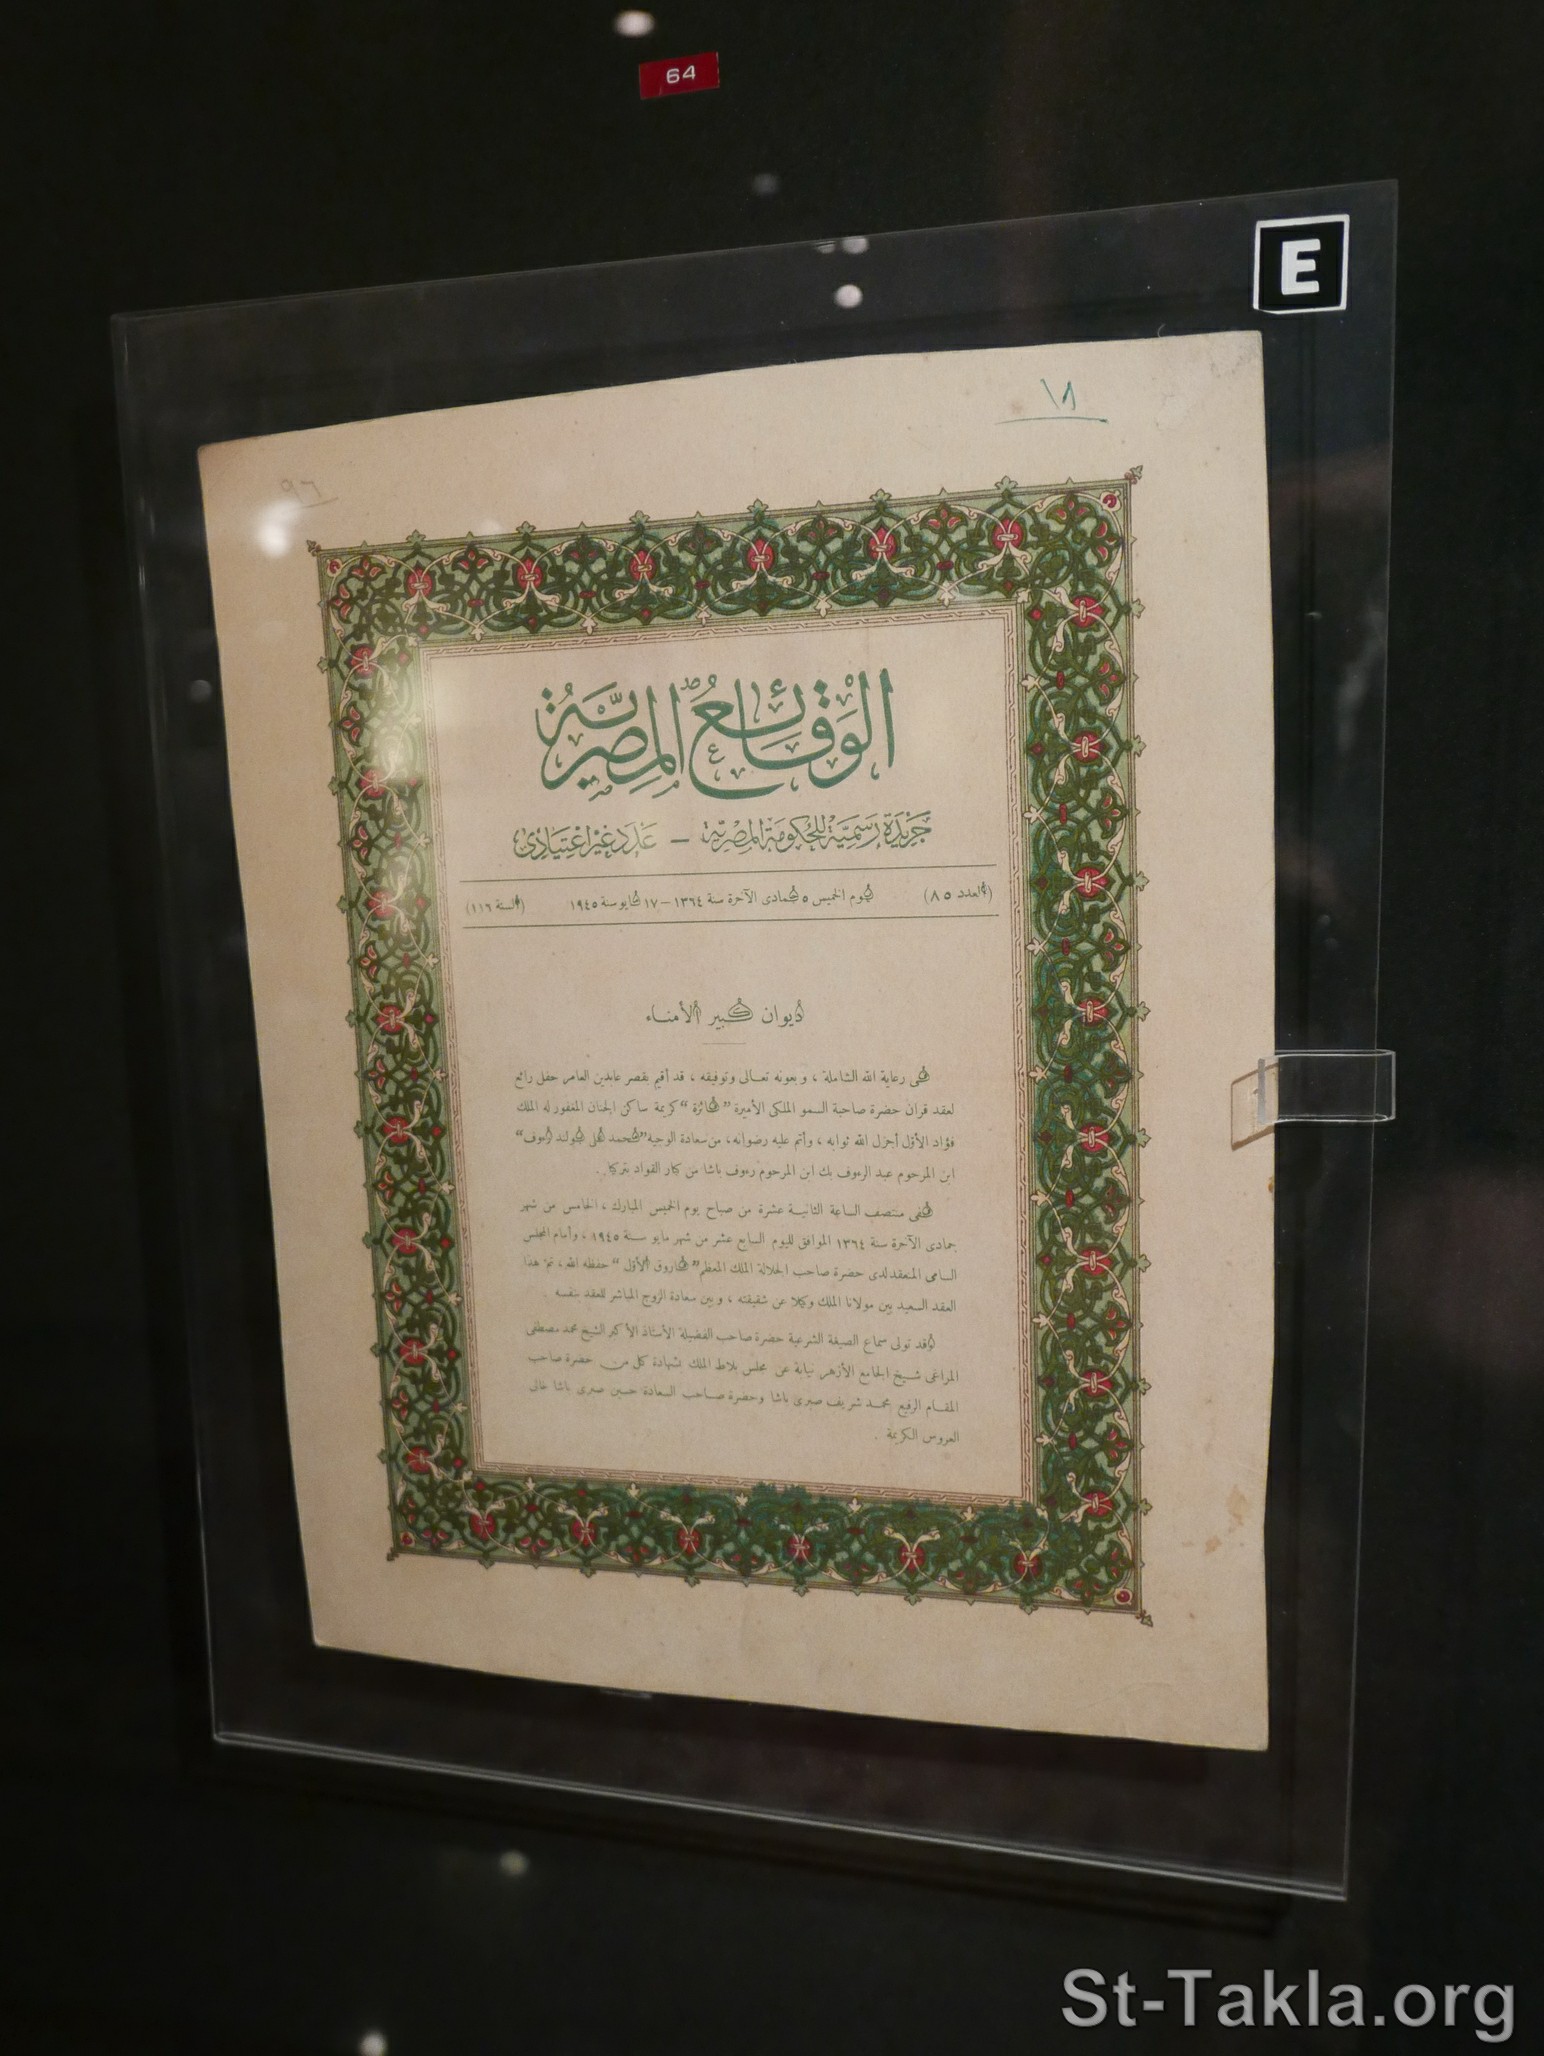 64
E
١٨
٩٦
الوَقَائِعُ المِصْرِيَّة
جَرِيْدَة رَسْمِيَّة لِلْحُكومَة المِصْرِيَّة – عَدَد غَيْر اعْتِيَادِى
(العدد ٨٥) يوم الخميس ٥ جمادى الآخرة سنة ١٣٦٤ – ١٧ مايو سنة ١٩٤٥ (السنة ١١٦)
ديوان كبير الأمناء
فى رعاية الله الشاملة ، وبعونه تعالى وتوفيقه ، قد أقيم بقصر عابدين العامر حفل رائع
لعقد قران حضرة صاحبة السمو الملكى الأميرة "فائزة" كريمة ساكن الجنان المغفور له الملك
فؤاد الأول أجزل الله ثوابه ، وأتم عليه رضوانه ، من سعادة الوجيه "محمد على بولند رءوف"
ابن المرحوم عبد الرءوف بك ابن المرحوم رءوف باشا من كبار القواد بتركيا .
ففى منتصف الساعة الثانية عشرة من صباح يوم الخميس المبارك ، الخامس من شهر
جمادى الآخرة سنة ١٣٦٤ الموافق لليوم السابع عشر من شهر مايو سنة ١٩٤٥ ، وأمام المجلس
السامى المنعقد لدى حضرة صاحب الجلالة الملك المعظم "فاروق الأول" حفظه الله ، تم هذا
العقد السعيد بين مولانا الملك وكيلا عن شقيقته ، وبين سعادة الزوج المباشر للعقد بنفسه .
وقد تولى سماع الصيغة الشرعية حضرة صاحب الفضيلة الأستاذ الأكبر الشيخ محمد مصطفى
المراغى شيخ الجامع الأزهر نيابة عن مجلس بلاط الملك بشهادة كل من حضرة صاحب
المقام الرفيع محمد شريف صبرى باشا وحضرة صاحب السعادة حسين صبرى باشا خالى
العروس الكريمة .
St-Takla.org